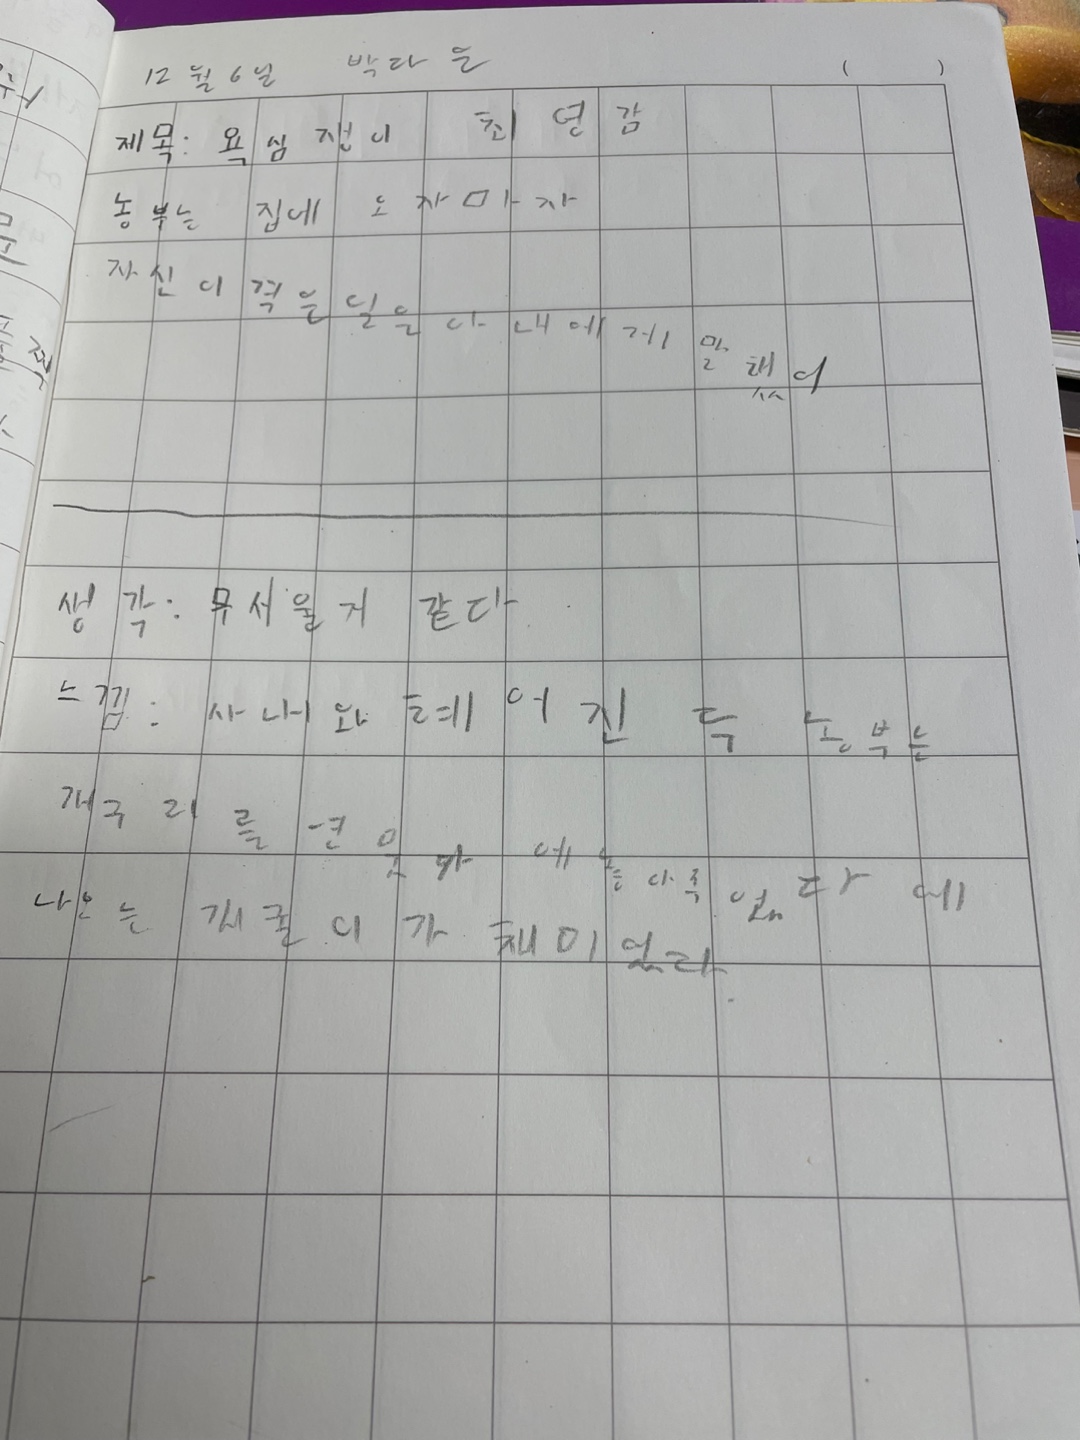 12월 6일 박다온 ( )
제목: 욕심쟁이 최영감
농부는 집에 오자마자
자신이 겪은 일을 아내에게 말했어
생각: 무서울거 같다
느낌: 사내와 헤어진 뒤 농부는
개구리를 연못가에 놓아주었다에
나오는 개굴이가 재미있다.